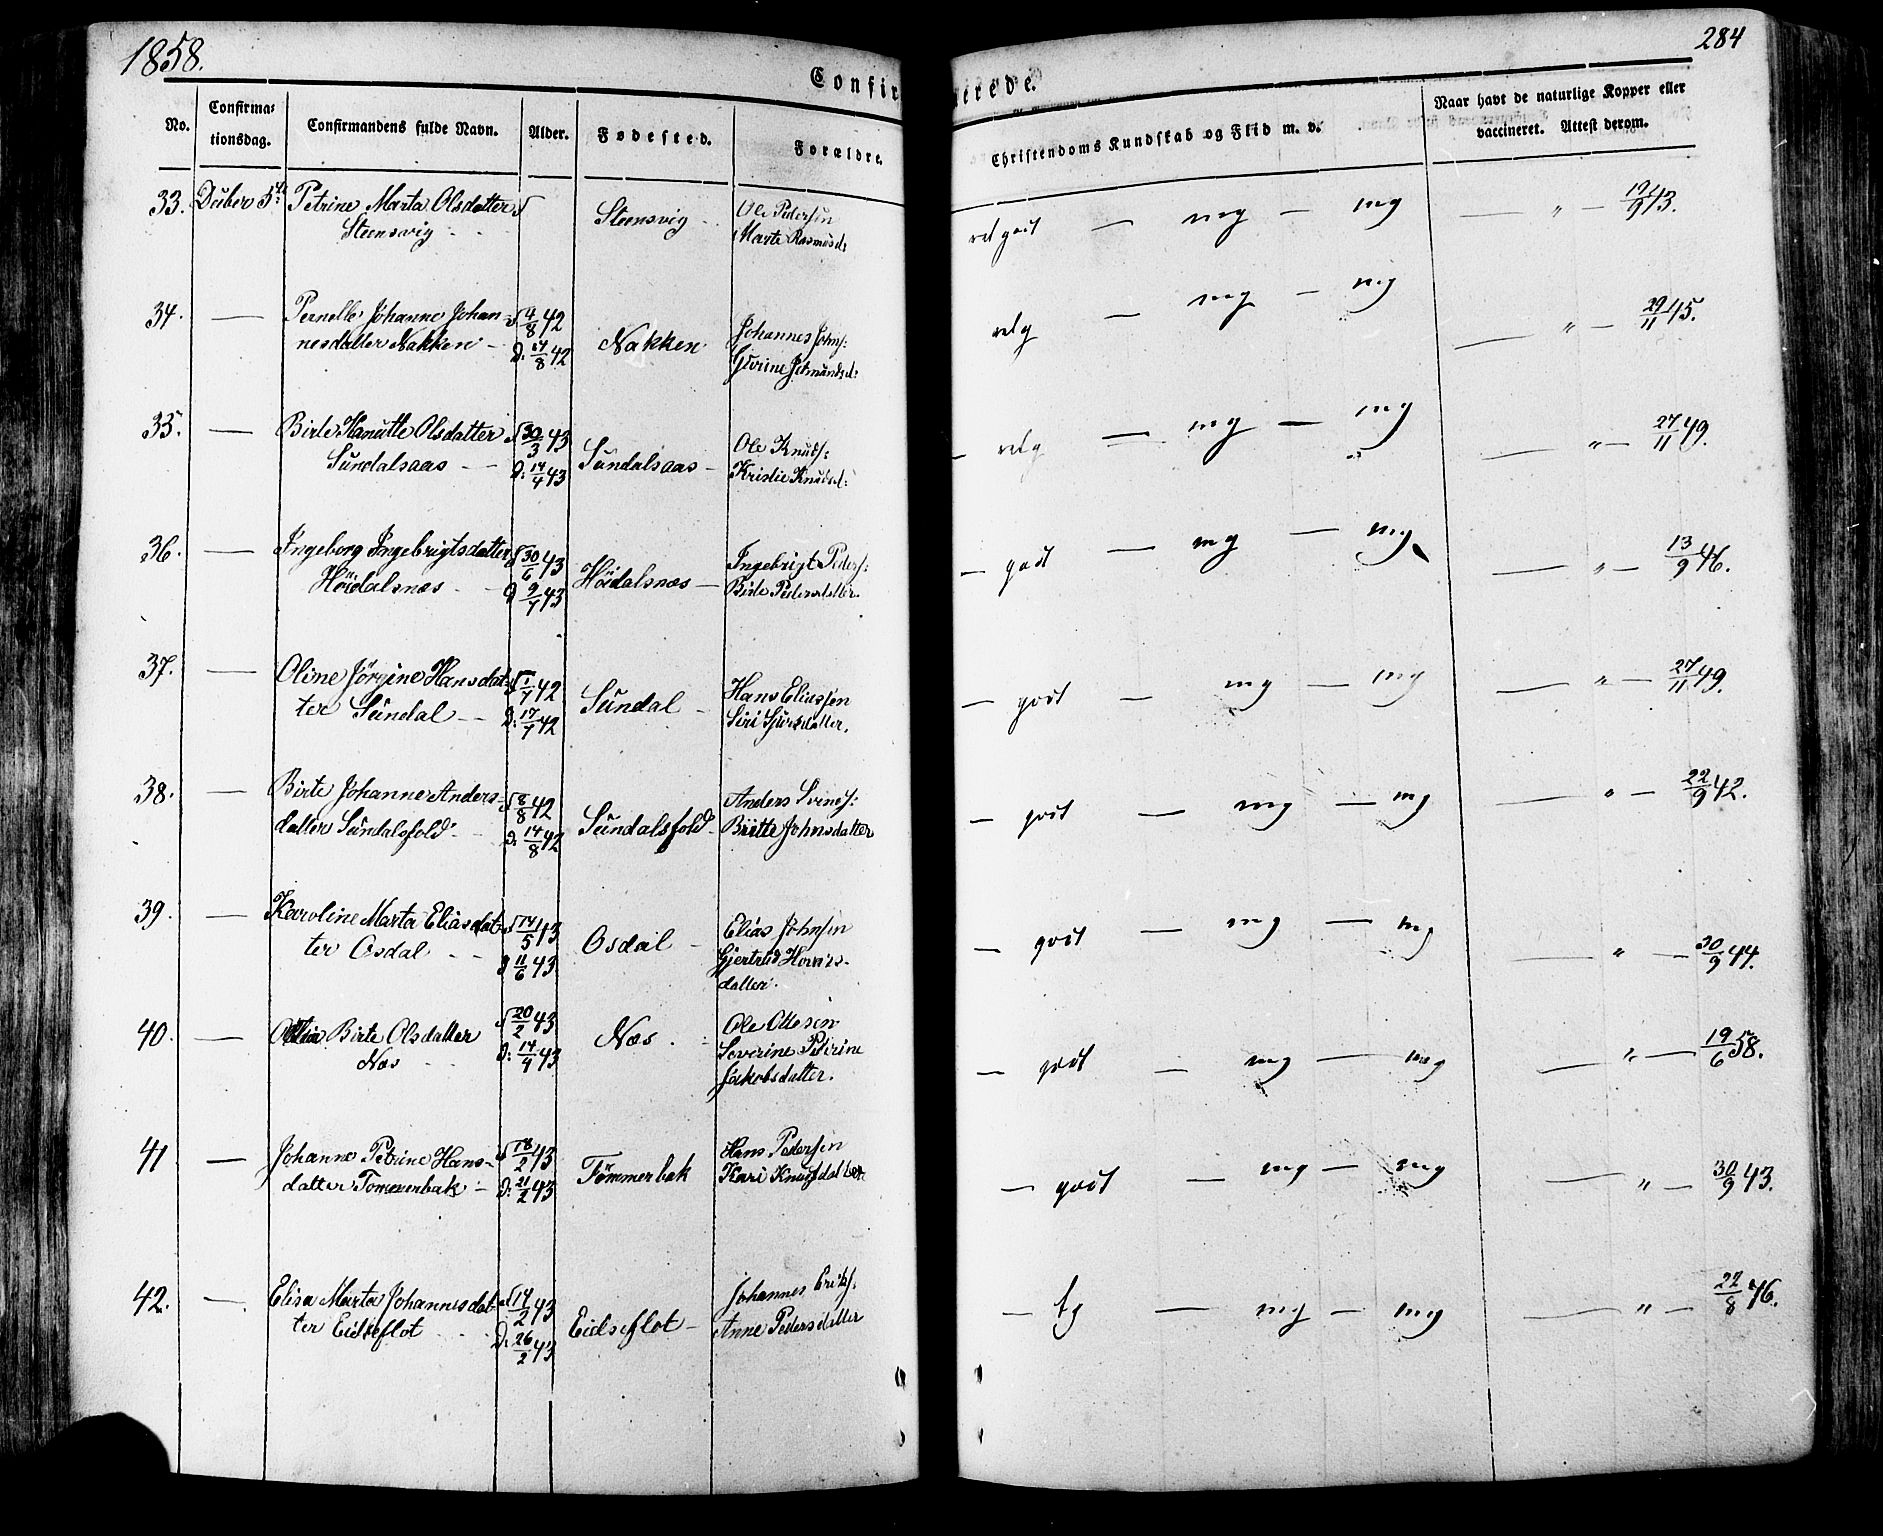 1858.
284
Confir
merede.
No.
Confirma-
tionsdag.
Confirmandens fulde Navn.
Alder.
Fødested.
Forældre.
Christendoms Kundskab og Flid m. v.
Naar havt de naturlige Kopper eller
vaccineret. Attest derom.
33. Petrine Marta Olsdatter
Steensvig
Steensvig
Ole Pedersen
Marte Rasmusd:
vel godt — mg — mg — „ — 19/9 43.
34. — Pernelle Johanne Johan-
nesdatter Nakken
f 4/8 42
D: 14/8 42
Nakken
Johannes Johns:
vel g — mg — mg — „ — 29/11 45.
35. — Birte Hanütte Olsdatter
Sündalsaas
f 30/3 43
D: 14/4 43
Sündalsaas
Ole Knuds:
Kristie Knudsd:
— vel g — mg — mg — „ — 27/11 49.
36. — Ingeborg Ingebrigtsdatter
Höidalsnæs
f 30/6 43
D 9/7 43
Höidalsnæs
Ingebrigt Peders:
Birte Pedersdatter.
— godt — mg — mg — „ — 13/9 46.
37. — Oline Jörgine Hansdat-
ter Sündal
f 1/7 42
D: 17/7 42
Sündal
Hans Eliassen
Siri Sjursdatter.
— godt — mg — mg — „ — 27/11 49.
38. — Birte Johanne Anders-
datter Sündalsfold
f 8/8 42
D: 14/8 42
Sündalsfold
Anders Svends:
Britte Johnsdatter
— godt — mg — mg — „ — 22/9 42.
39. — Karoline Marta Eliasdat-
ter Osdal
f 14/5 43
D 11/6 43
Osdal
Elias Johnsen
Gjertrud
datter.
— godt — mg — mg — „ — 30/9 44.
40. — Birte Olsdatter
Næs
f 20/2 43
D: 14/4 43
Næs
Ole Ottesen
Severine Petrine
Jakobsdatter.
— godt — mg — mg — „ — 19/6 58.
41 — Johanne Petrine Hans-
datter Tömmerbak
f 18/2 43
D: 21/2 43
Tömmerbak
Hans Pedersen
Kari Knudsdatter
— godt — mg — mg — „ — 30/9 43.
42. — Elisa Marta Johannesdat-
ter Eidseflot
f 14/2 43
D: 26/2 43
Eidseflot
Johannes Eriks:
Anne Pedersdatter
— tg — mg — mg — „ — 22/8 46.